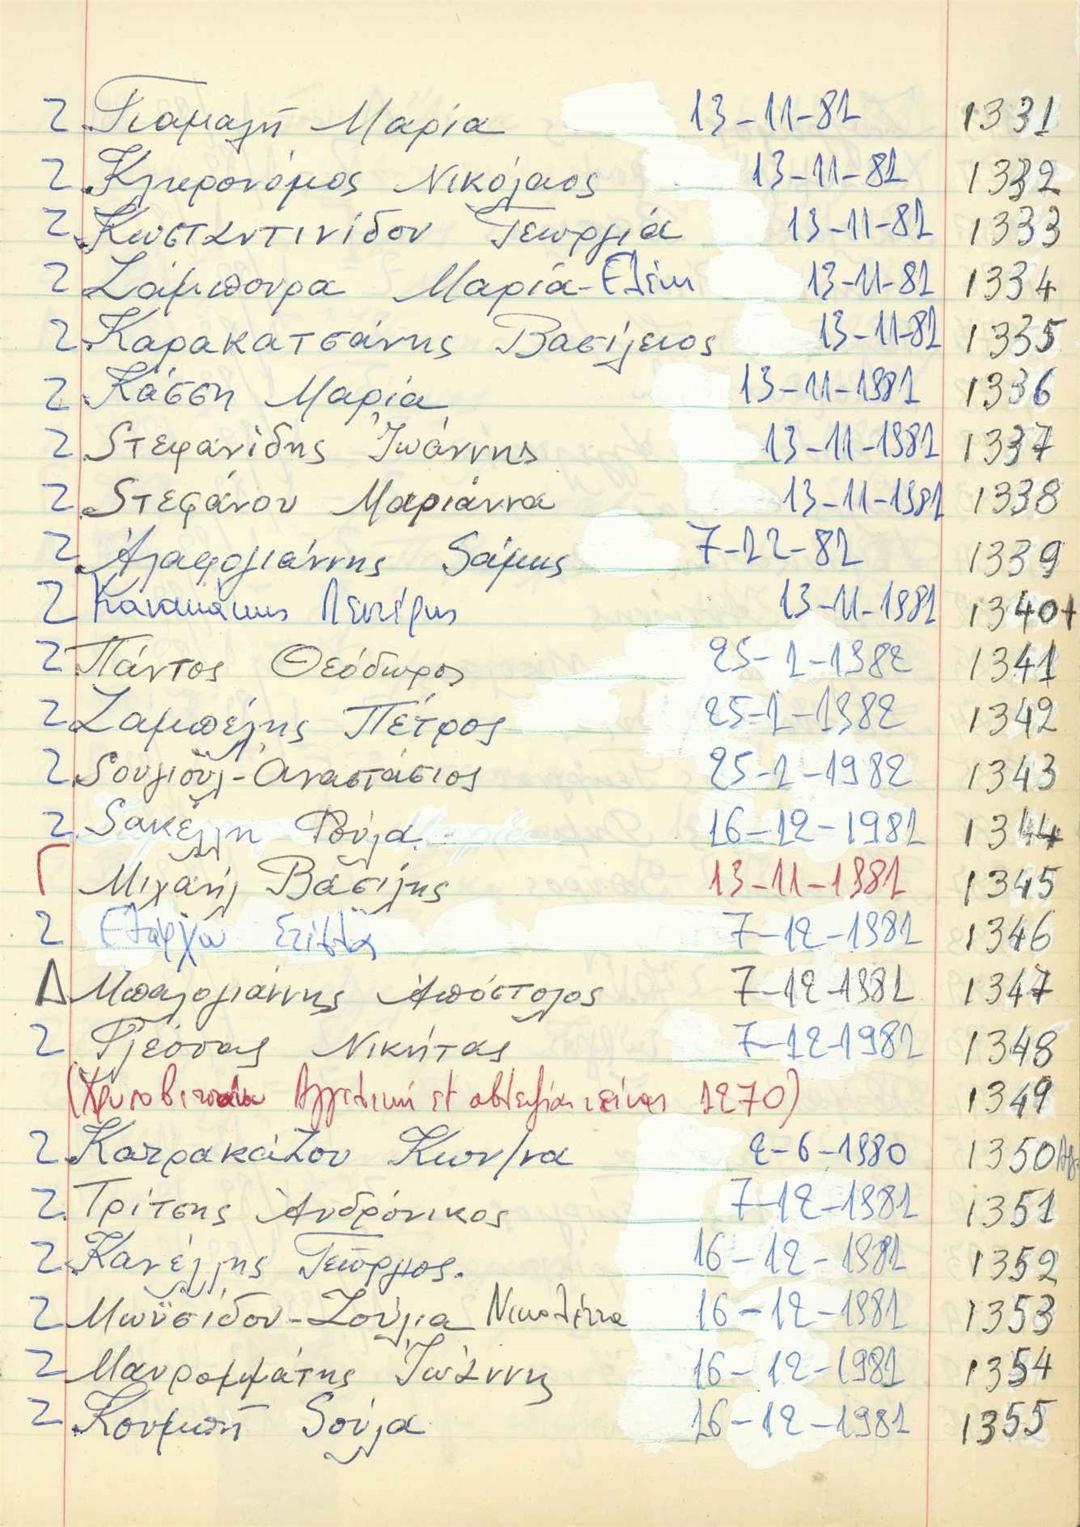 2 Γιαμαλῆ Μαρία 13-11-81 1331
2 Κληρονόμος Νικόλαος 13-11-81 1332
2 Κωσταντινίδου Γεωργία 13-11-81 1333
2 Ζάμπουρα Μαρία-Ελένη 13-11-81 1334
2 Καρακατσάνης Βασίλειος 13-11-81 1335
2 Κάσση Μαρία 13-11-1981 1336
2 Στεφανίδης Ἰωάννης 13-11-1981 1337
2 Στεφάνου Μαριάννα 13-11-1981 1338
2 Ἀλαφογιάννης Σάμης 7-12-81 1339
2 Κανακάκης Λευτέρης 13-11-1981 1340+
2 Πάντος Θεόδωρος 25-1-1982 1341
2 Ζαμπέλης Πέτρος 25-1-1982 1342
2 Σουλιούλ-Ἀναστάσιος 25-1-1982 1343
2 Σακέλλη Ρούλα 16-12-1981 1344
Γ Μιχαήλ Βασίλης 13-11-1981 1345
2 Στέλλα 7-12-1981 1346
Δ Μπαλογιάννης Ἀπόστολος 7-12-1981 1347
2 Φλέσσας Νικήτας 7-12-1981 1348
Αγγελική 1270) 1349
2 Κατρακάζου Κων/να 2-6-1980 1350
2 Τρίτσης Ἀνδρόνικος 7-12-1981 1351
2 Κανέλλης Γεῶργιος. 16-12-1981 1352
2 Μωϋσίδου-Ζούλια Νικολέττα 16-12-1981 1353
2 Μαυρομμάτης Ἰωάννης 16-12-1981 1354
2 Κουμπῆ Σούλα 16-12-1981 1355